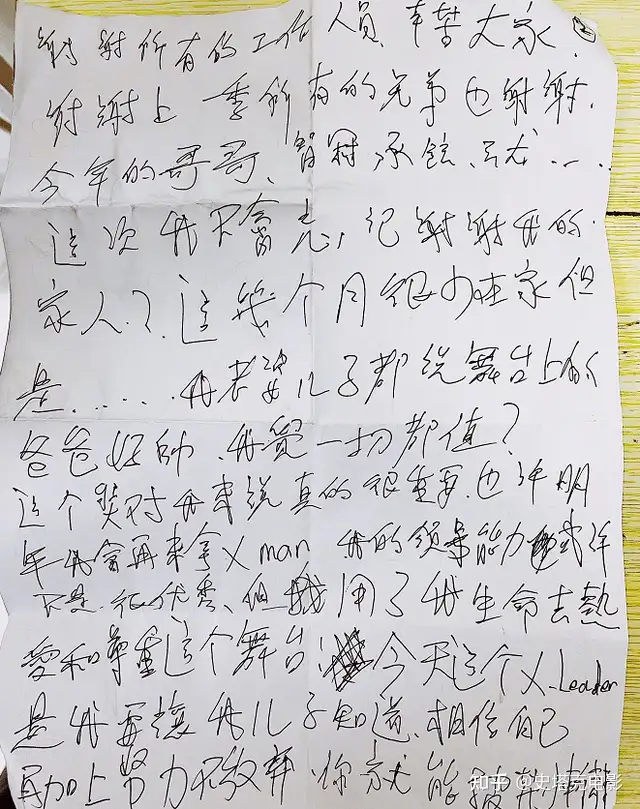 謝謝所有的工作人員.辛苦大家.
謝謝上一季所有的兄弟也謝謝.
今年的哥哥、智霖承鉉、……
這次我不會忘記謝謝我的.
家人??這幾个月很少在家但
是……我老婆儿子都说舞台上的
爸爸好帅.我覺一切都值?
这个獎对我来说真的很重要.也许明
年我會再来拿X man 我的领導能力或许
不是很优秀、但我用了我生命去熱
愛和尊重这个舞台 今天这个X-Leader
是我要讓我儿子知道.相信自己
加上努力不放弃.你就能
知乎 @史塔克电影